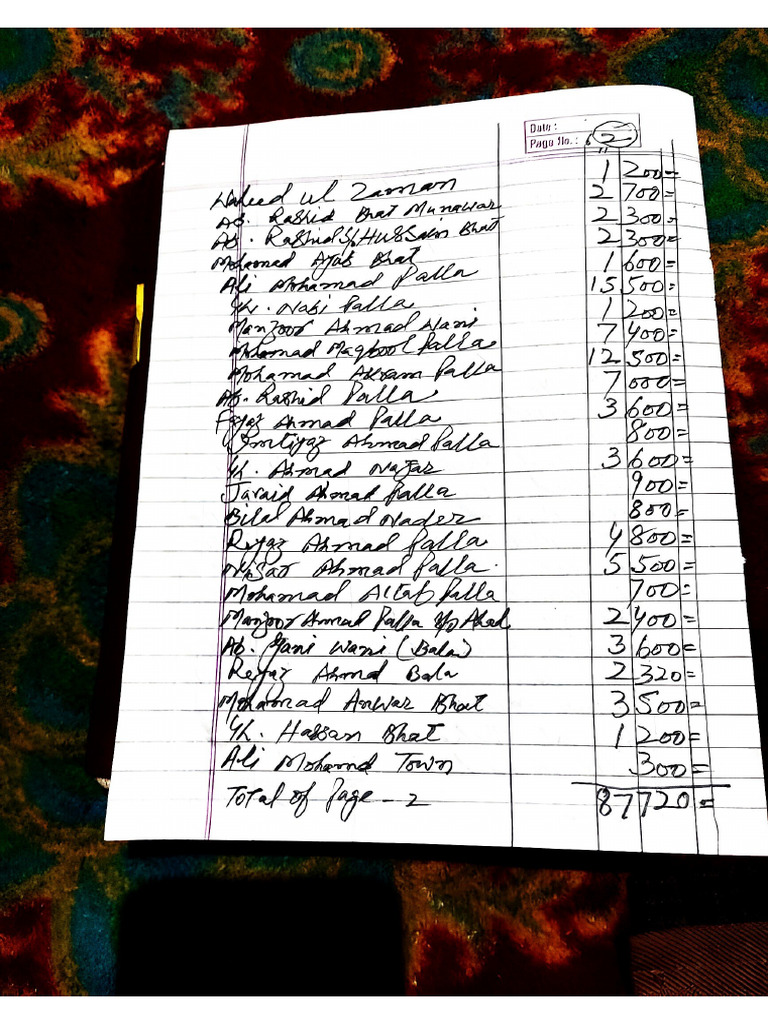 Date :
Page No. : 2
Waheed ul Zaman 1 200=
Ab. Rashid Bhat Munawar 2 700=
Ab. Rashid S/ Hussain Bhat 2 300=
Mohamad Ayub Bhat 2 300=
Ali Mohamad Palla 1 600=
Gh. Nabi Palla 15 500=
Manzoor Ahmad Wani 1 200=
Mohamad Maqbool Palla 7 400=
Mohamad Akram Palla 12 500=
Ab. Rashid Palla 7 000=
Fayaz Ahmad Palla 3 600=
Imtiyaz Ahmad Palla 800=
Gh. Ahmad Najar 3 600=
Javaid Ahmad Palla 900=
Bilal Ahmad Nader 800=
Reyaz Ahmad Palla 4 800=
Nisar Ahmad Palla 5 500=
Mohamad Altaf Palla 700=
Manzoor Ahmad Palla S/o Ahad 2 400=
Ab. Gani Wani (Bala) 3 600=
Reyaz Ahmd Bala 2 320=
Mohamad Anwar Bhat 3 500=
Gh. Hassan Bhat 1 200=
Ali Mohamd Town 300=
Total of Page - 2 87720=